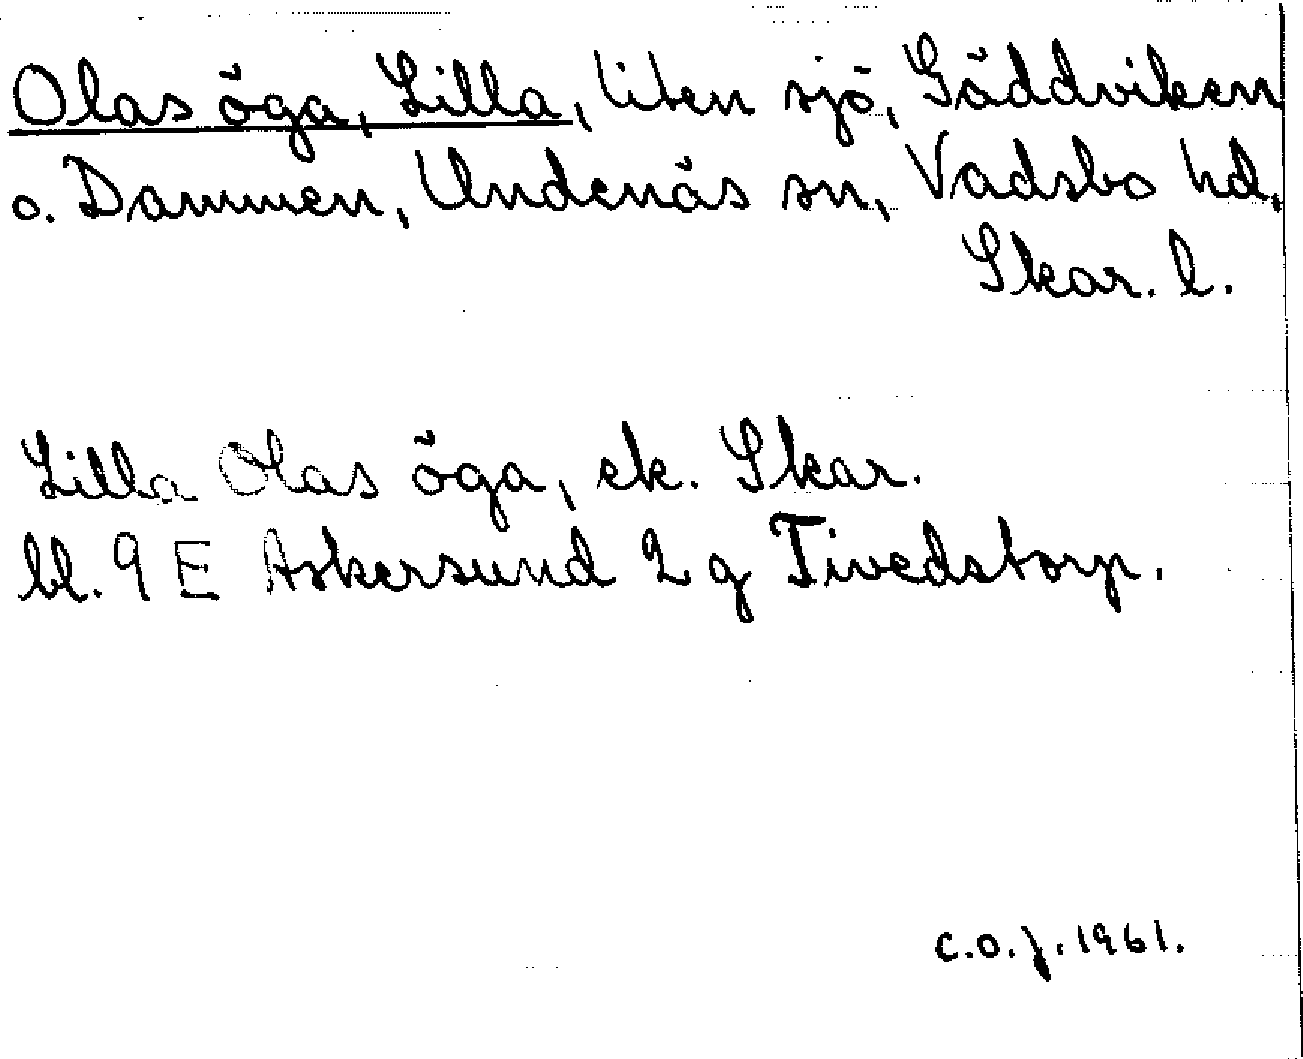 Olas öga, Lilla, liten sjö, Gäddviken
o. Dammen, Undenäs sn, Vadsbo hd,
Skar. l.
Lilla Olas öga, ek. Skar.
bl. 9 E Askersund 2 g Tivedstorp.
C.O.J. 1961.